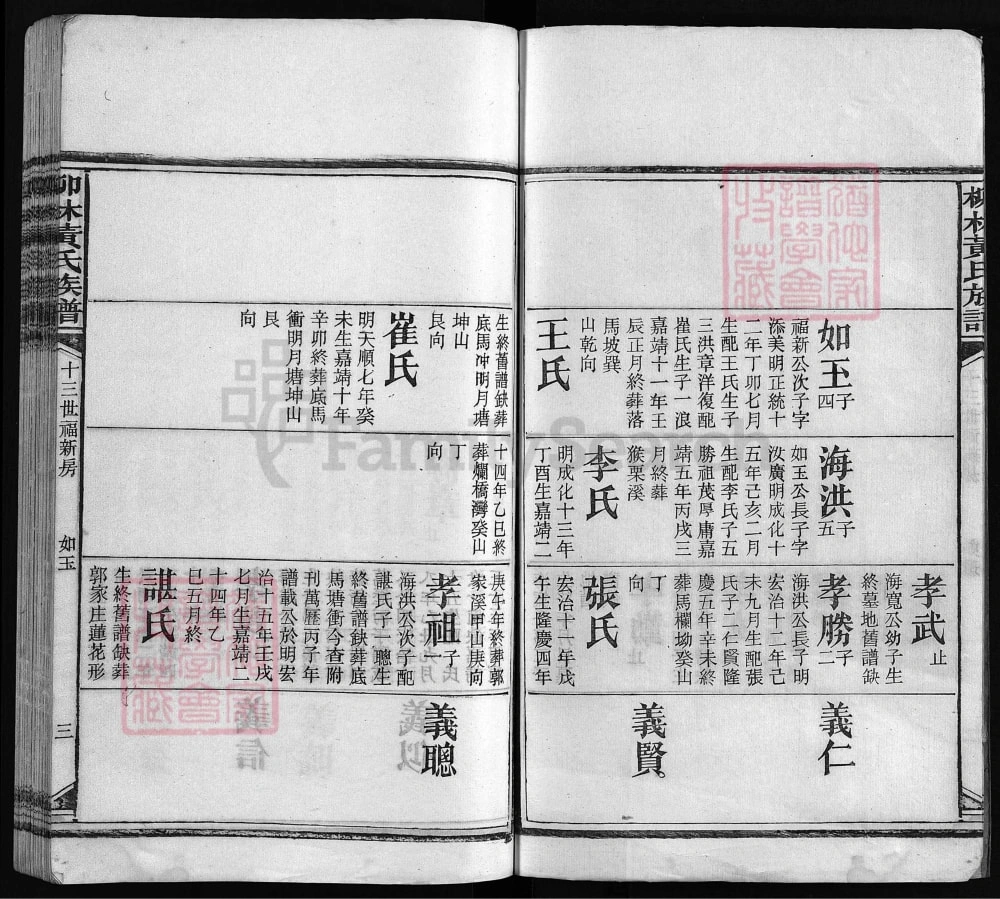 柳林黃氏族譜
如玉 子四
福新公次子字
添美明正統十
二年丁卯七月
生配王氏生子
三洪章洋復配
崔氏生子一浪
嘉靖十一年壬
辰正月終葬落
馬坡巽
山乾向
王氏
生終舊譜缺葬
底馬冲明月塘
坤山
艮向
崔氏
明天順七年癸
未生嘉靖十年
辛卯終葬底馬
衝明月塘坤山
艮
向
海洪 子五
如玉公長子字
汝廣明成化十
五年己亥二月
生配李氏子五
勝祖茂厚庸嘉
靖五年丙戌三
月終葬
猴栗溪
李氏
明成化十三年
丁酉生嘉靖二
十四年乙巳終
葬爛橋灣癸山
丁
向
孝武 止
海寬公幼子生
終墓地舊譜缺
孝勝 子二
海洪公長子明
宏治十二年己
未九月生配張
氏子二仁賢隆
慶五年辛未終
葬馬欄坳癸山
丁
向
張氏
宏治十一年戊
午生隆慶四年
庚午年終葬郭
家溪甲山庚向
孝祖 子一
海洪公次子配
諶氏子一聰生
終舊譜缺葬底
馬塘衝今查附
刊萬歷丙子年
譜載公於明宏
治十五年壬戌
七月生嘉靖二
十四年乙
巳五月終
諶氏
生終舊譜缺葬
郭家庄蓮花形
義仁
義賢
義聰
卯林黃氏族譜
十三世福新房 如玉
三
FamilySearch